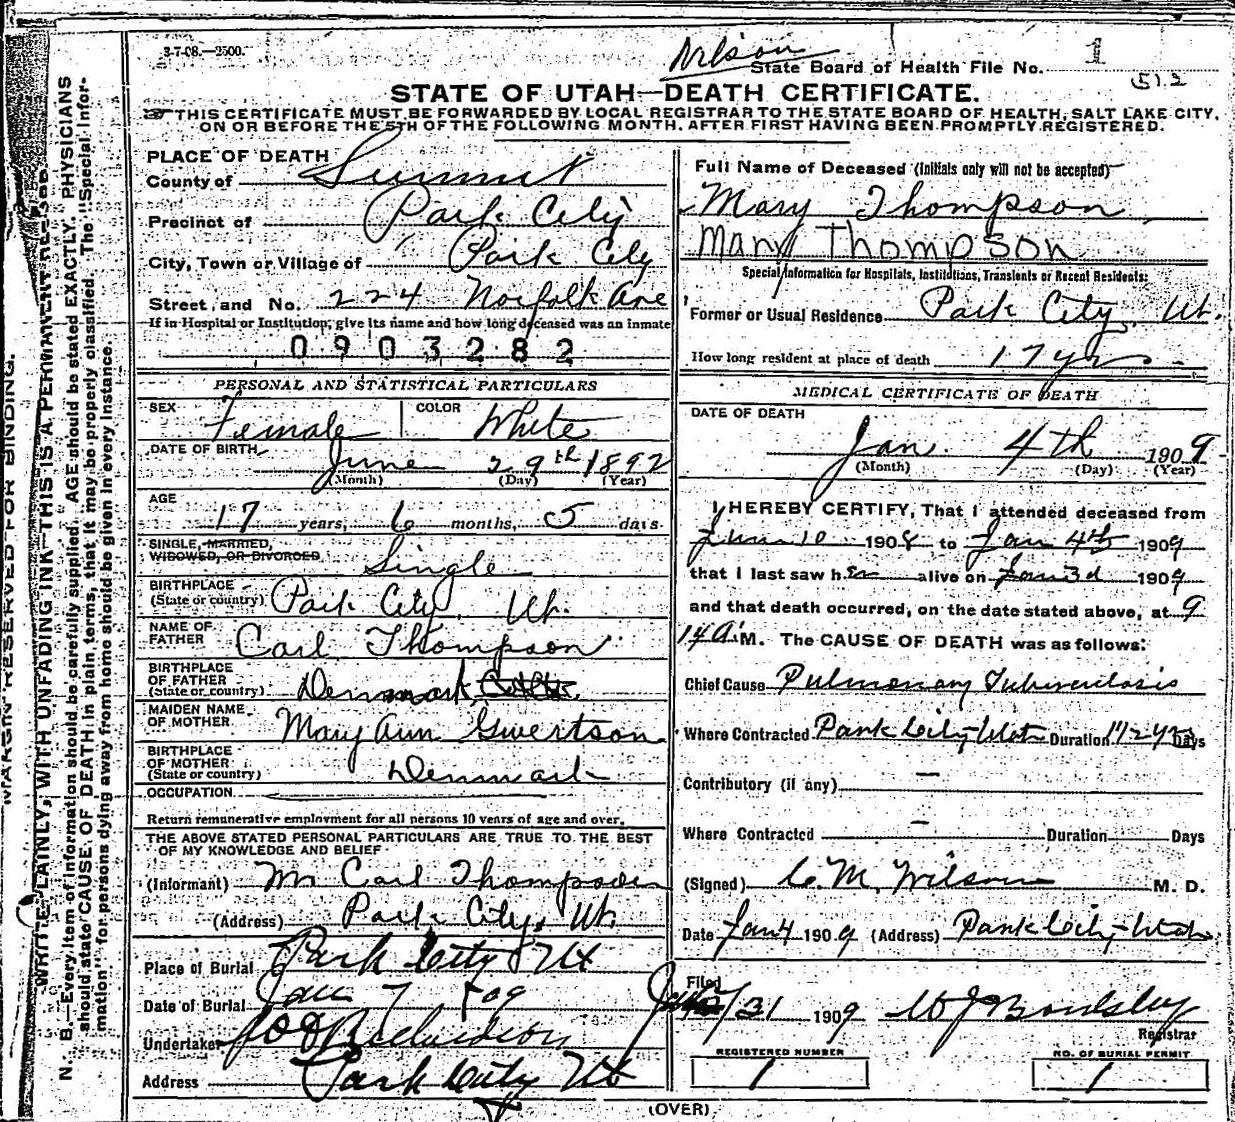 3-7-08.—2500.
Wilson
State Board of Health File No. 1
(5) 2
STATE OF UTAH—DEATH CERTIFICATE.
THIS CERTIFICATE MUST BE FORWARDED BY LOCAL REGISTRAR TO THE STATE BOARD OF HEALTH, SALT LAKE CITY,
ON OR BEFORE THE 5TH OF THE FOLLOWING MONTH, AFTER FIRST HAVING BEEN PROMPTLY REGISTERED.
PLACE OF DEATH
County of Summit
Precinct of Park City
City, Town or Village of Park City
Street and No. 224 Norfolk Ave
If in Hospital or Institution, give its name and how long deceased was an inmate
0903282
PERSONAL AND STATISTICAL PARTICULARS
SEX Female COLOR White
DATE OF BIRTH June 29th 1892
(Month) (Day) (Year)
AGE
17 years, 6 months, 5 days
SINGLE, MARRIED,
WIDOWED, OR DIVORCED Single
BIRTHPLACE
(State or country) Park City, Ut.
NAME OF
FATHER Carl Thompson
BIRTHPLACE
OF FATHER
(State or country) Denmark
MAIDEN NAME
OF MOTHER Mary Ann
BIRTHPLACE
OF MOTHER
(State or country) Denmark
OCCUPATION
Return remunerative employment for all persons 10 years of age and over.
THE ABOVE STATED PERSONAL PARTICULARS ARE TRUE TO THE BEST
OF MY KNOWLEDGE AND BELIEF
(Informant) Mr Carl Thompson
(Address) Park City, Ut.
Place of Burial Park City Ut
Date of Burial Jan 7 09
Undertaker Richardson
Address Park City Ut
Full Name of Deceased (Initials only will not be accepted)
Mary Thompson
Mary Thompson
Special Information for Hospitals, Institutions, Transients or Recent Residents:
Former or Usual Residence Park City, Ut.
How long resident at place of death 17 yr
MEDICAL CERTIFICATE OF DEATH
DATE OF DEATH
Jan. 4th 1909
(Month) (Day) (Year)
I HEREBY CERTIFY, That I attended deceased from
June 10 1908 to Jan 4th 1909
that I last saw her alive on Jan 3d 1909
and that death occurred, on the date stated above, at 9
14 A.M. The CAUSE OF DEATH was as follows:
Chief Cause Pulmonary Tuberculosis
Where Contracted Park City-Utah Duration 1 1/2 yrs Days
Contributory (if any) —
Where Contracted — Duration Days
(Signed) C. M. Wilson M. D.
Date Jan 4 1909 (Address) Park City-Utah
Filed
Jan 31 1909
Registrar
REGISTERED NUMBER
1
NO. OF BURIAL PERMIT
1
(OVER)
MARGIN RESERVED FOR BINDING.
WRITE PLAINLY, WITH UNFADING INK—THIS IS A PERMANENT RECORD
N. B.—Every item of information should be carefully supplied. AGE should be stated EXACTLY. PHYSICIANS
should state CAUSE OF DEATH in plain terms, that it may be properly classified. The "Special Infor-
mation" for persons dying away from home should be given in every instance.